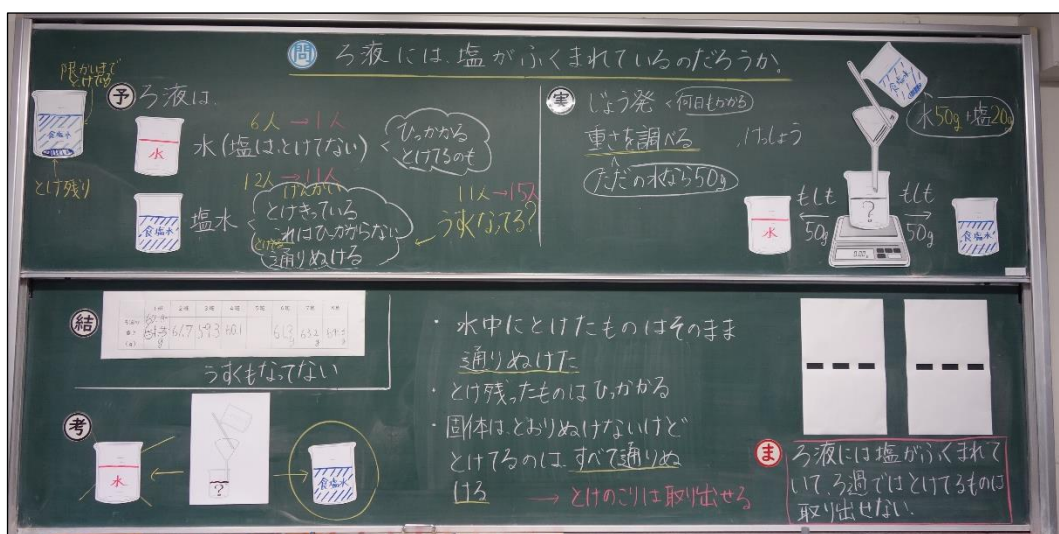 問 ろ液には、塩がふくまれているのだろうか。
限かいまで
とけてる
食塩水
とけ残り
予 ろ液は、
6人→1人
水
水(塩は、とけてない)
ひっかかる
とけてるのも
12人→11人
げんかい
食塩水
塩水
とけきっている
これはひっかからない
通りぬける
11人→15人
うすくなてる?
実 じょう発
何日もかかる
重さを調べる
けっしょう
ただの水なら50g
食塩水
水50g+塩20g
もしも
50g
水
?
もしも
50g
食塩水
結
1班 2班 3班 4班 5班 6班 7班 8班
61.7 59.3 60.1
うすくもなってない
考
水
?
食塩水
・水中にとけたものはそのまま
通りぬけた
・とけ残ったものはひっかかる
・固体は、とおりぬけないけど
とけてるのは、すべて通りぬ
ける
→とけのこりは取り出せる
ま ろ液には塩がふくまれて
いて、ろ過ではとけてるものは
取り出せない。